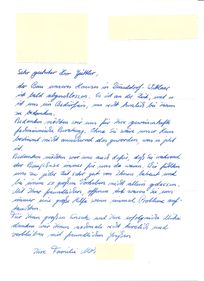 Sehr geehrter Herr Güttler,
der Bau unseres Hauses in Düsseldorf-Wittlaer
ist bald abgeschlossen. Es ist an der Zeit, und es
ist uns ein Bedürfnis, uns recht herzlich bei Ihnen
zu bedanken.
Bedanken möchten wir uns für Ihre gewissenhafte
fachmännische Beratung. Ohne Sie wäre unser Haus
bestimmt nicht annähernd das geworden was es jetzt
ist.
Bedanken möchten wir uns auch dafür, daß Sie während
der Bauphase immer für uns da waren. Sie
zu jeder Zeit sehr gut von Ihnen betreut und
bei einem so großen Vorhaben nicht allein gelassen.
Mit Ihrer freundlichen offenen Art waren Sie uns
immer eine große Hilfe wenn einmal Probleme auf-
tauchten.
Für Ihren großen Einsatz und Ihre erfolgreiche Mühe
danken wir Ihnen nochmals recht herzlich und
verbleiben mit freundlichen Grüßen
Ihre Familie